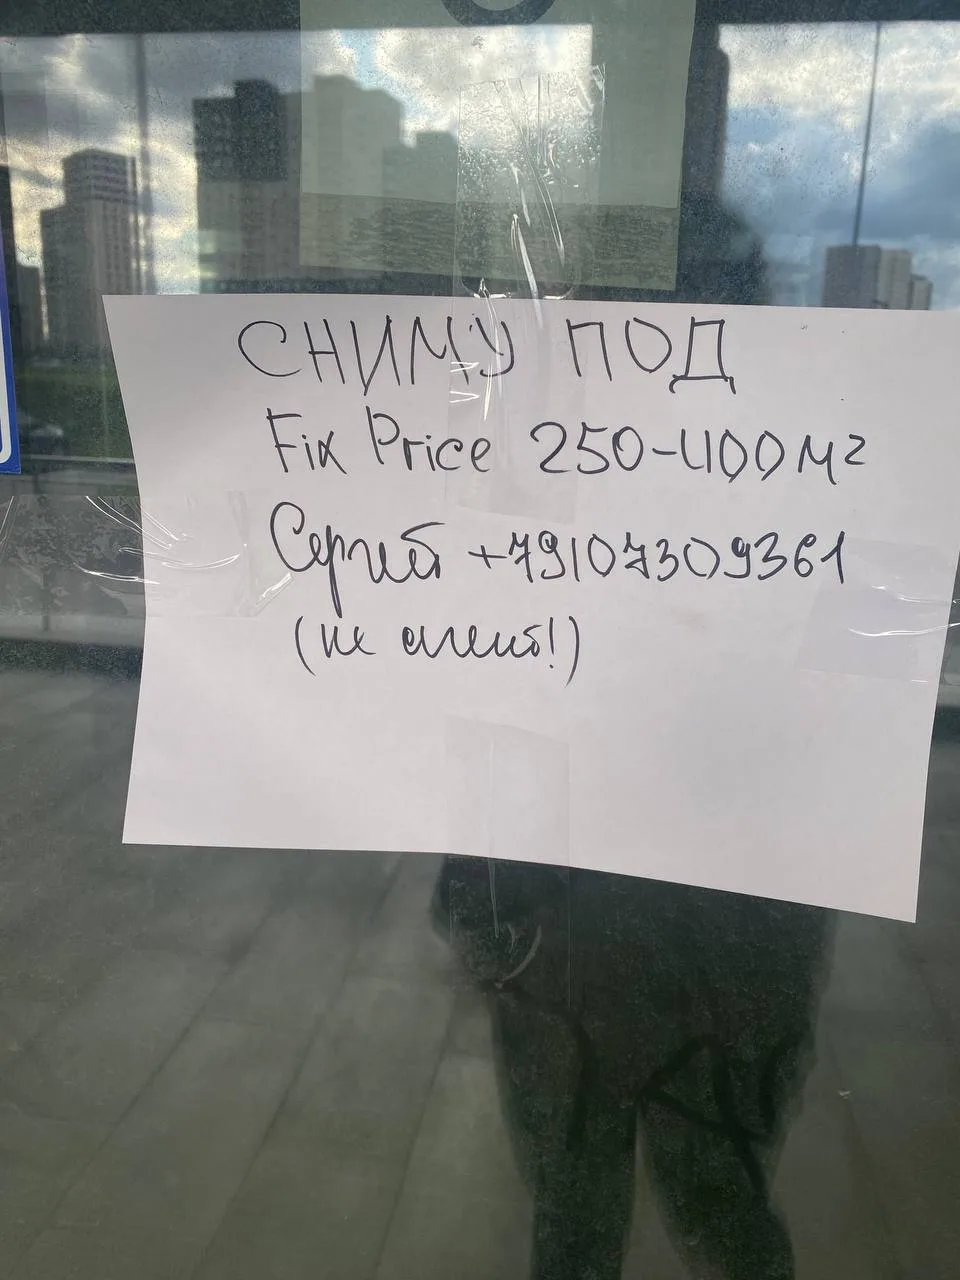 СНИМУ ПОД
Fix Price 250-400 м²
Сергей +79107309361
(не агент!)